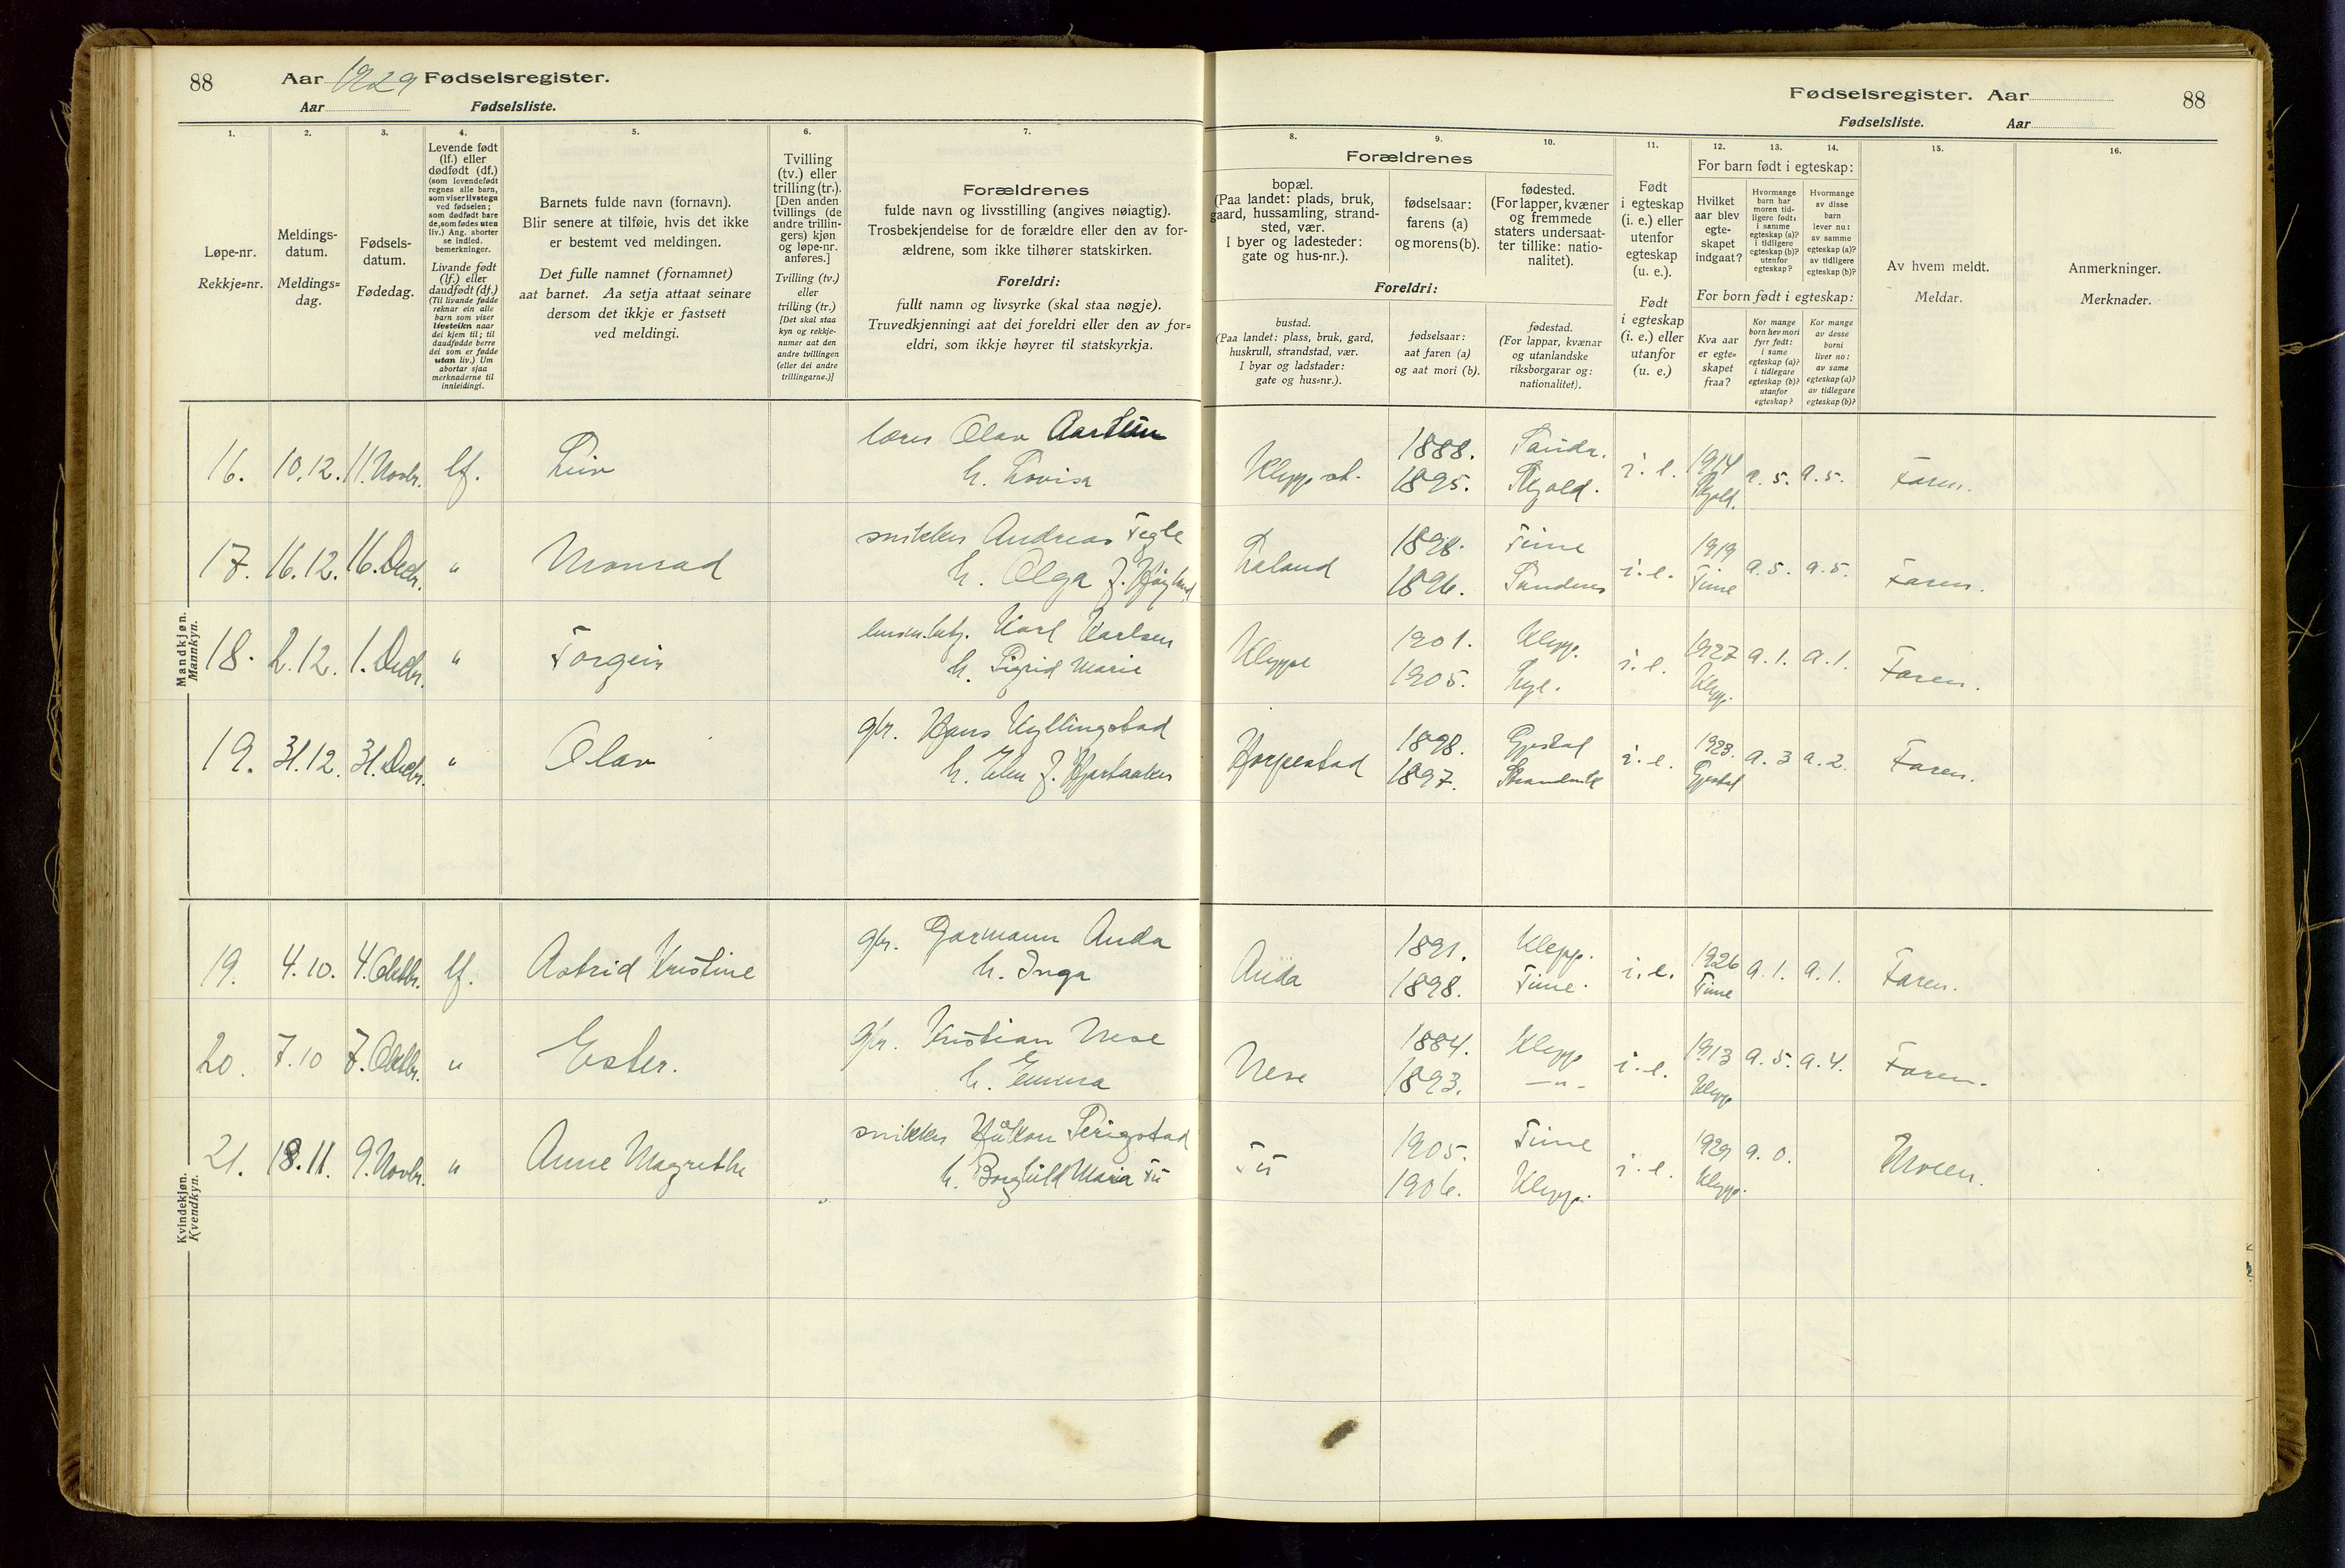 88
Aar 1929 Fødselsregister.
Aar Fødselsliste.
1.
2.
3.
4.
5.
6.
7.
Løpe-nr.
Rekkje=nr.
Meldings-
datum.
Meldings=
dag.
Fødsels-
datum.
Fødedag.
Levende født
(lf.) eller
dødfødt (df.)
(som levendefødt
regnes alle barn,
som viser livstegn
ved fødselen;
som dødfødt bare
de, som fødes uten
liv.) Ang. aborter
se indled.
bemerkninger.
Livande født
(lf.) eller
daudfødt (df.)
(Til livande fødde
reknar ein alle
barn som viser
livsteikn naar
dei kjem til; til
daudfødde berre
dei som er fødde
utan liv.) Um
abortar sjaa
merknaderne til
innleidingi.
Barnets fulde navn (fornavn).
Blir senere at tilføie, hvis det ikke
er bestemt ved meldingen.
Det fulle namnet (fornamnet)
aat barnet. Aa setja attaat seinare
dersom det ikkje er fastsett
ved meldingi.
Tvilling
(tv.) eller
trilling (tr.).
[Den anden
tvillings (de
andre trillin-
gers) kjøn
og løpe-nr.
anføres.]
Tvilling (tv.)
eller
trilling (tr.)
[Det skal staa
kyn og rekkje-
numer aat den
andre tvillingen
(eller dei andre
trillingarne.)]
Forældrenes
fulde navn og livsstilling (angives nøiagtig).
Trosbekjendelse for de forældre eller den av for-
ældrene, som ikke tilhører statskirken.
Foreldri:
fullt namn og livsyrke (skal staa nøgje).
Truvedkjenningi aat dei foreldri eller den av for=
eldri, som ikkje høyrer til statskyrkja.
Mandkjøn.
Mannkyn.
16. 10.12. 11. Novbr. lf. Liv lærer Olav Aarthun
h. Lovisa
17. 16.12. 16. Decbr. " Monrad snikker Andreas Tegle
h. Olga f. Høyland
18. 2.12. 1. Decbr. " Torgeir Karl Karlsen
h. Sigrid Marie
19. 31.12. 31. Decbr. " Olav gbr. Hans Kyllingstad
h. Elen f.
Kvindekjøn.
Kvendkyn.
19. 4.10. 4. Oktbr. lf. Astrid Kristine gbr. Garmann Anda
h. Inga
20. 7.10 7. Oktbr. " Ester. gbr. Kristian Nese
h. Emma
21. 18.11. 9. Novbr. " Anne Magrethe snikker Håkon Serigstad
h. Borghild Maria Tu
Fødselsregister. Aar
88
Fødselsliste. Aar
8.
9.
10.
11.
12.
13.
14.
15.
16.
Forældrenes
bopæl.
(Paa landet: plads, bruk,
gaard, hussamling, strand-
sted, vær.
I byer og ladesteder:
gate og hus-nr.).
fødselsaar:
farens (a)
og morens (b).
fødested.
(For lapper, kvæner
og fremmede
staters undersaat-
ter tillike: natio-
nalitet).
Foreldri:
bustad.
(Paa landet: plass, bruk, gard,
huskrull, strandstad, vær.
I byar og ladstader:
gate og hus=nr.).
fødselsaar:
aat faren (a)
og aat mori (b).
fødestad.
(For lappar, kvænar
og utanlandske
riksborgarar og:
nationalitet).
Født
i egteskap
(i. e.) eller
utenfor
egteskap
(u. e.).
Født
i egteskap
(i. e.) eller
utanfor
(u. e.)
For barn født i egteskap:
Hvilket
aar blev
egte-
skapet
indgaat?
Hvormange
barn har
moren tid-
ligere født:
i samme
egteskap (a)?
i tidligere
egteskap (b)?
utenfor
egteskap?
Hvormange
av disse
barn
lever nu:
av samme
egteskap (a)?
av tidligere
egteskap (b)?
For born født i egteskap:
Kva aar
er egte=
skapet
fraa?
Kor mange
born hev mori
fyrr født:
i same
egteskap (a)?
i tidlegare
egteskap (b)?
utanfor
egteskap?
Kor mange
av desse
borni
liver no:
av same
egteskap (a)?
av tidlegare
egteskap (b)?
Av hvem meldt.
Meldar.
Anmerkninger.
Merknader.
Klepp st. 1888. Sauda. i. e. 1914 a. 5. a. 5. Faren.
1895. Skjold. Skjold.
Laland 1898. Time i. e. 1919 a. 5. a. 5. Faren.
1896. Sandnes Time
Kleppe 1901. Klepp. i. e. 1927 a. 1. a. 1. Faren.
1905. Hye. Klepp.
Horpestad 1898. Gjestal i. e. 1923. a. 3 a. 2. Faren.
1897. Strandvik Gjestal
Anda 1891. Klepp. i. e. 1926 a. 1. a. 1. Faren.
1898. Time. Time
Nese 1884. Klepp i. e. 1913 a. 5. a. 4. Faren.
1893. —"— Klepp
Tu 1905. Time i. e. 1929 a. 0. Moren.
1906. Klepp. Klepp.